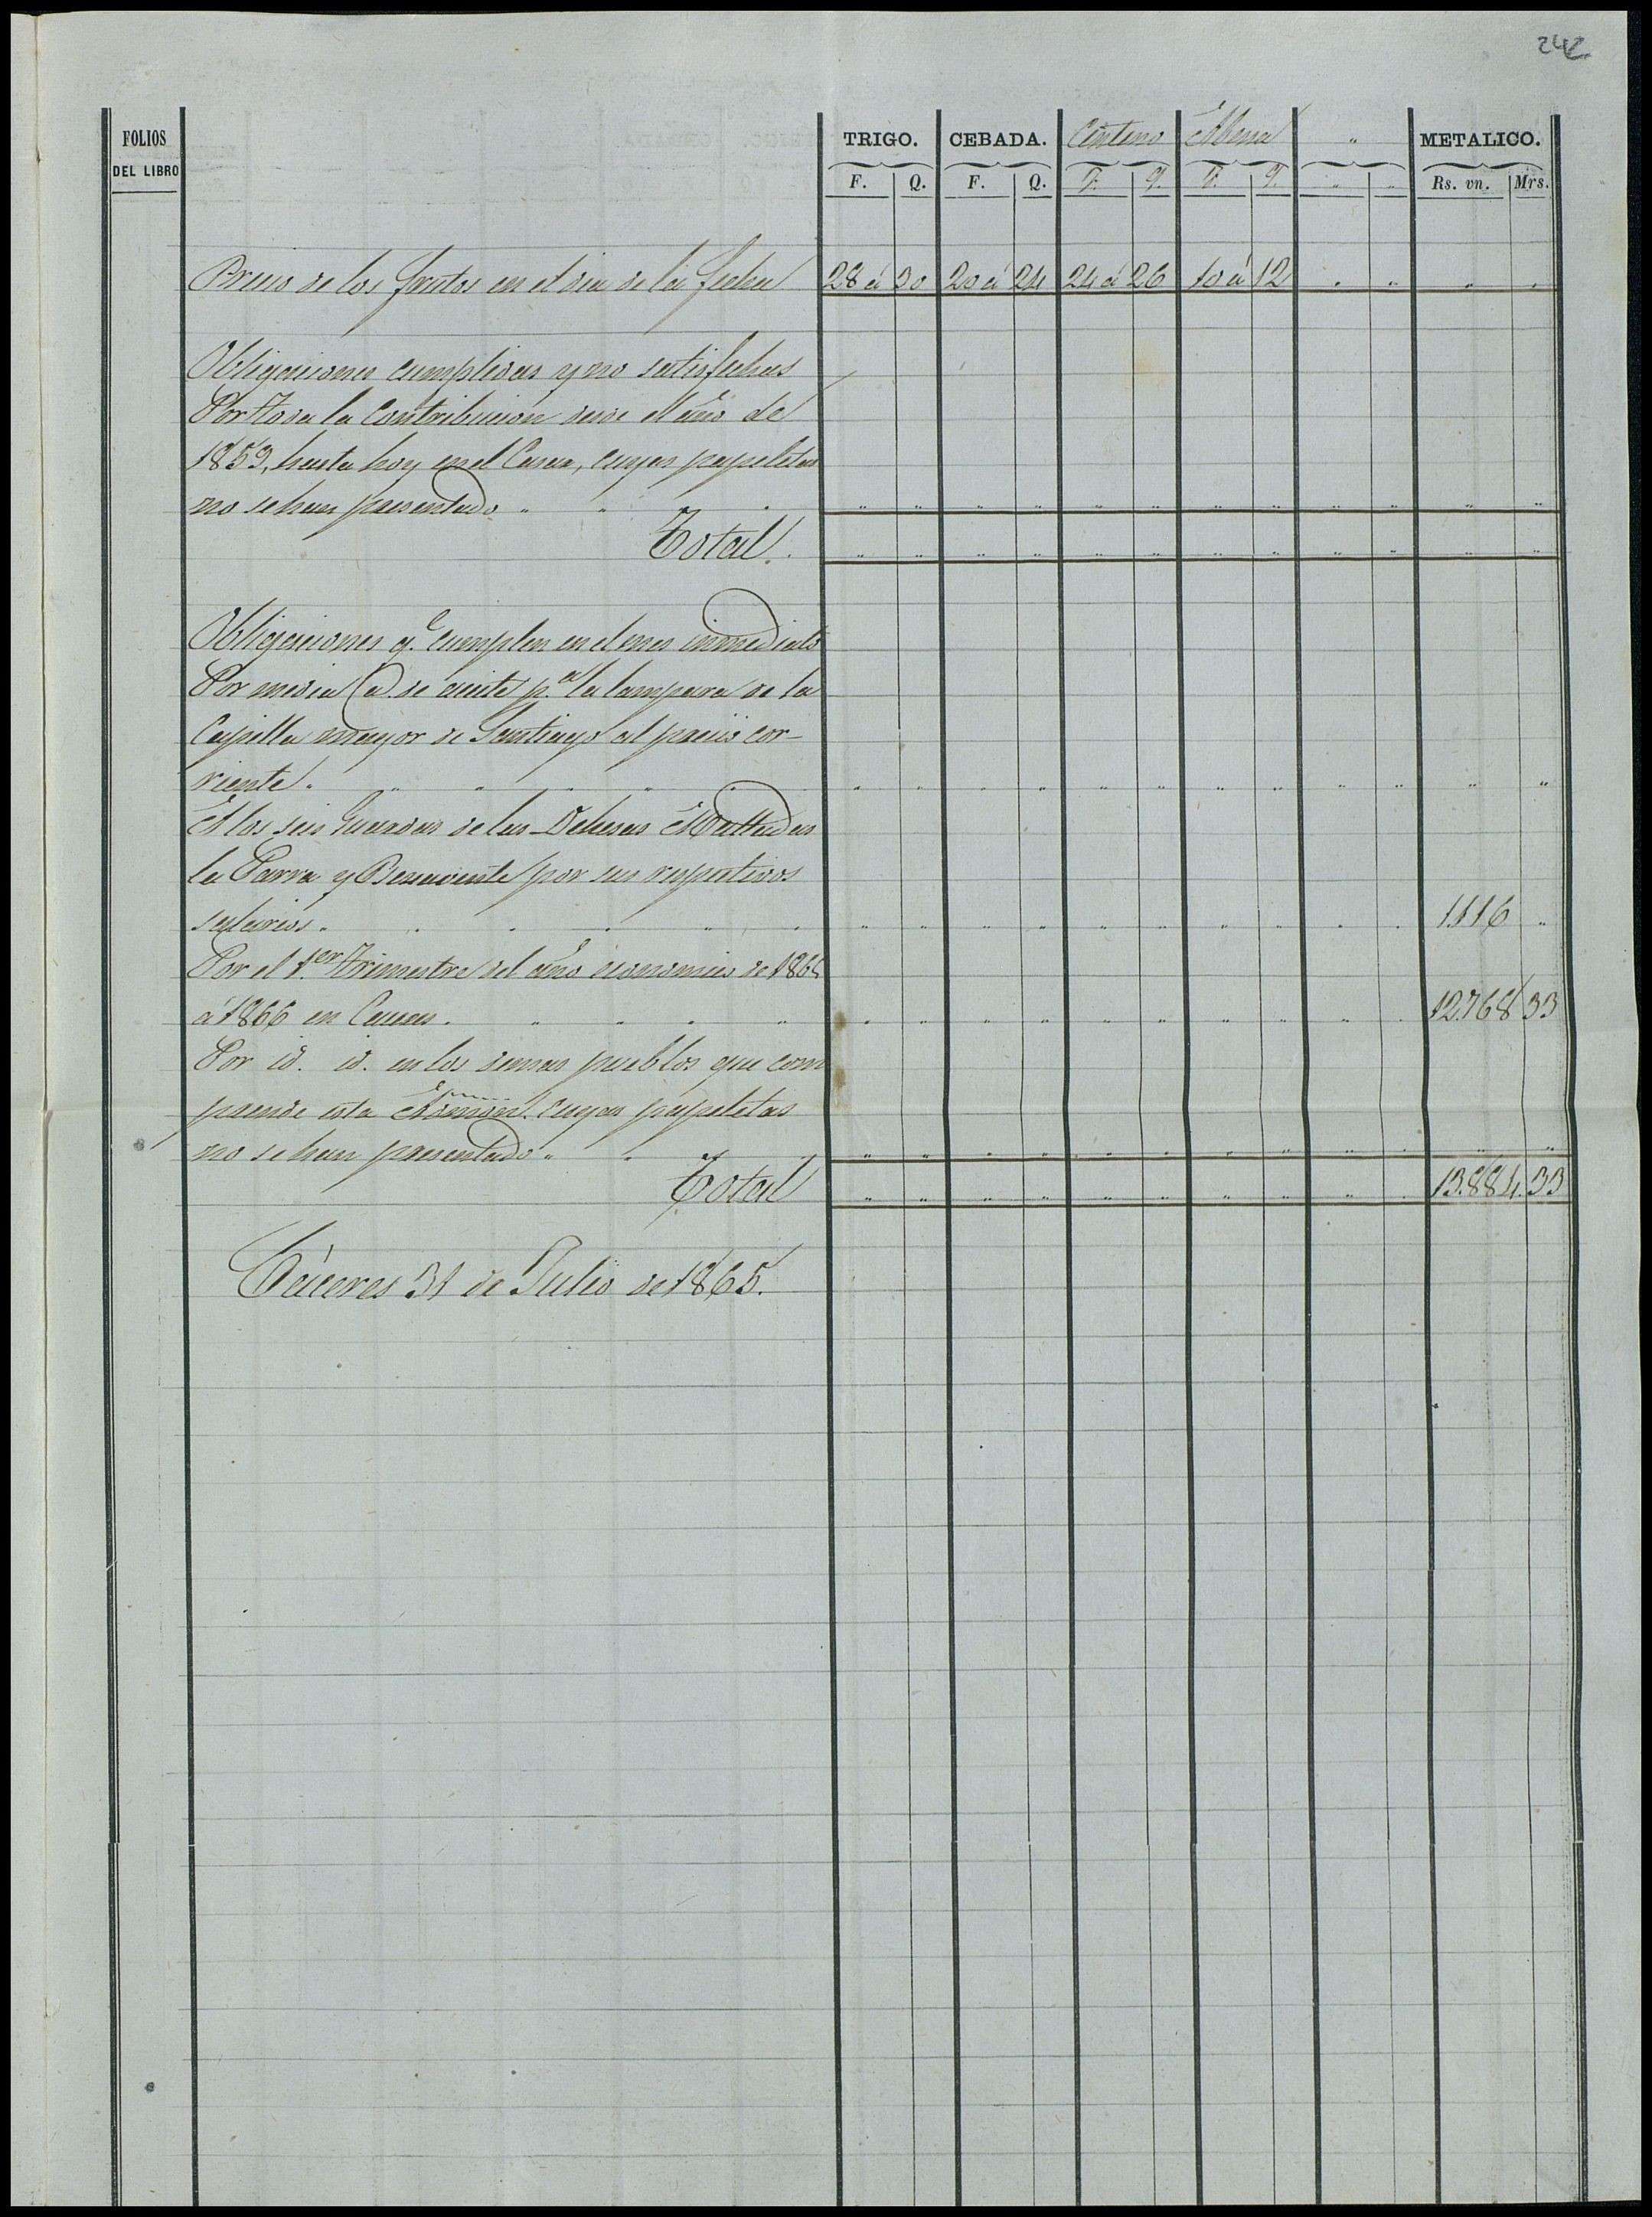 242
FOLIOS DEL LIBRO TRIGO. CEBADA. Centeno Abena " METALICO.
F. Q. F. Q. F. Q. F. Q. " " Rs. vn. Mrs.
Precio de los frutos en el dia de la fecha 28 á 30 20 á 24 24 á 26 10 á 12 " " " "
Obligaciones cumplidas y no satisfechas
Por toda la Contribucion desde el año de
1859, hasta hoy en el Casar, cuyas papeletas
no se han presentado " " " " " " " " " " " " " " "
Total. " " " " " " " " " " " "
Obligaciones q.e cumplen en el mes inmediato
Por media @ de aceite p.a la lampara de la
Capilla mayor de Santiago al precio cor-
riente. " " " " " " " " " " " " " " " " "
A los seis Guardas de las Dehesas
la Parra y Benavente por sus respectivos
salarios. " " " " " " " " " " " " " " " 1116 "
Por el 1.er Trimestre del año economico de 1865
á 1866 en Caceres. " " " " " " " " " " " " " " 12.768 33
Por id. id. en los demas pueblos que com
prende esta Admon. cuyas papeletas
no se han presentado " " " " " " " " " " " " " " "
Total " " " " " " " " " " 13.884. 33
Cáceres 31 de Julio de 1865.